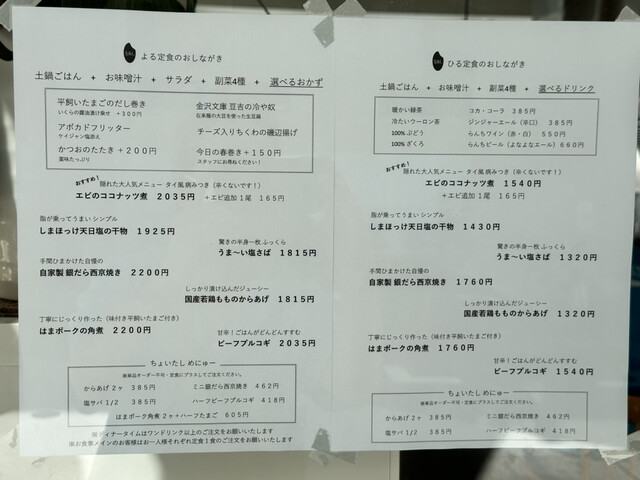 よる定食のおしながき
土鍋ごはん + お味噌汁 + サラダ + 副菜4種 + 選べるおかず
平飼いたまごのだし巻き
いくらの醤油漬け乗せ +300円
アボカドフリッター
ケイジャン塩添え
かつおのたたき +200円
薬味たっぷり
金沢文庫 豆吉の冷や奴
在来種の大豆を使った生豆腐
チーズ入りちくわの磯辺揚げ
今日の春巻き +150円
スタッフにお尋ねください!
おすすめ! 隠れた大人気メニュー タイ風病みつき(辛くないです!)
エビのココナッツ煮 2035円 +エビ追加1尾 165円
脂が乗ってうまい シンプル
しまほっけ天日塩の干物 1925円
驚きの半身一枚 ふっくら
うま〜い塩さば 1815円
手間ひまかけた自慢の
自家製 銀だら西京焼き 2200円
しっかり漬け込んだジューシー
国産若鶏もものからあげ 1815円
丁寧にじっくり作った(味付き平飼いたまご付き)
はまポークの角煮 2200円
甘辛!ごはんがどんどんすすむ
ビーフプルコギ 2035円
ちょいたし めにゅー
※単品オーダー不可・定食にプラスしてご注文ください。
からあげ2ヶ 385円
ミニ銀だら西京焼き 462円
塩サバ 1/2 385円
ハーフビーフプルコギ 418円
はまポーク角煮2ヶ+ハーフたまご 605円
※ディナータイムはワンドリンク以上のご注文をお願いいたします
※お食事メインのお客様はお一人様それぞれ定食1食のご注文をお願いいたします
ひる定食のおしながき
土鍋ごはん + お味噌汁 + 副菜4種 + 選べるドリンク
暖かい緑茶
冷たいウーロン茶
100% ぶどう
100% ざくろ
コカ・コーラ 385円
ジンジャーエール(辛口) 385円
らんちワイン(赤・白) 550円
らんちビール(よなよなエール)660円
おすすめ! 隠れた大人気メニュー タイ風病みつき(辛くないです!)
エビのココナッツ煮 1540円
+エビ追加1尾 165円
脂が乗ってうまい シンプル
しまほっけ天日塩の干物 1430円
驚きの半身一枚 ふっくら
うま〜い塩さば 1320円
手間ひまかけた自慢の
自家製 銀だら西京焼き 1760円
しっかり漬け込んだジューシー
国産若鶏もものからあげ 1320円
丁寧にじっくり作った(味付き平飼いたまご付き)
はまポークの角煮 1760円
甘辛!ごはんがどんどんすすむ
ビーフプルコギ 1540円
ちょいたし めにゅー
※単品オーダー不可・定食にプラスしてご注文ください。
からあげ2ヶ 385円
ミニ銀だら西京焼き 462円
塩サバ 1/2 385円
ハーフビーフプルコギ 418円